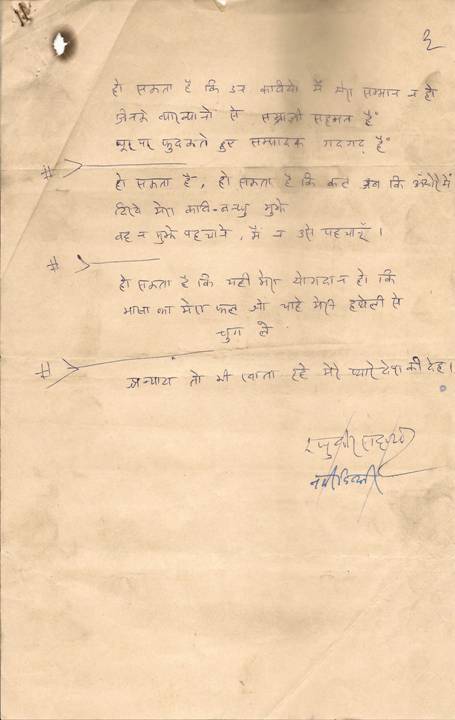 २
हो सकता है कि उन कवियों में मेरा सम्मान न हो
जिनके व्याख्यानों से सम्राज्ञी सहमत हैं
घूर पर फुदकते हुए सम्पादक गदगद हैं
#
हो सकता है, हो सकता है कि कल जब कि अंधेरे में
दिखे मेरा कवि-बन्धु मुझे
वह न मुझे पहचाने, मैं न उसे पहचानूँ ।
#
हो सकता है कि यही मेरा योगदान हो कि
भाषा का मेरा फल जो चाहे मेरी हथेली से
चुग ले
#
अन्याय तो भी खाता रहे मेरे प्यारे देश की देह ।
रघुवीर सहाय
नयी दिल्ली